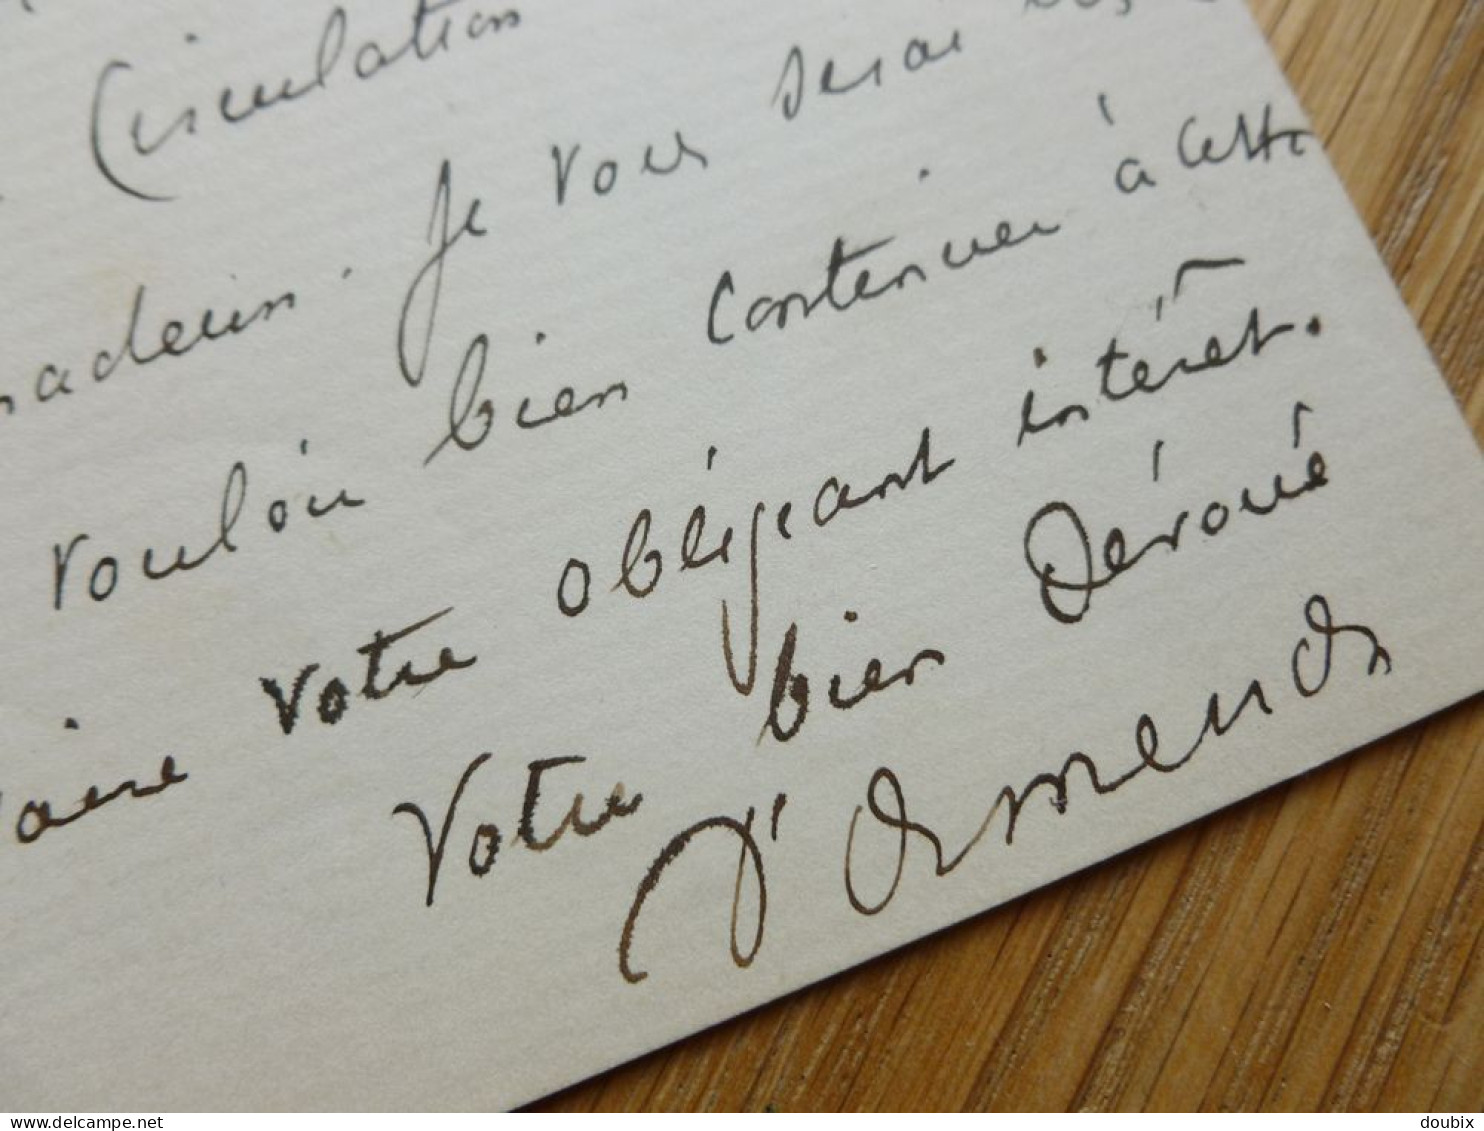 Circulation
Je vous serai
vouloir bien continuer à cette
votre obligeant intérêt.
Votre bien Dévoué
d'Ormend
delcampe.net
doubix